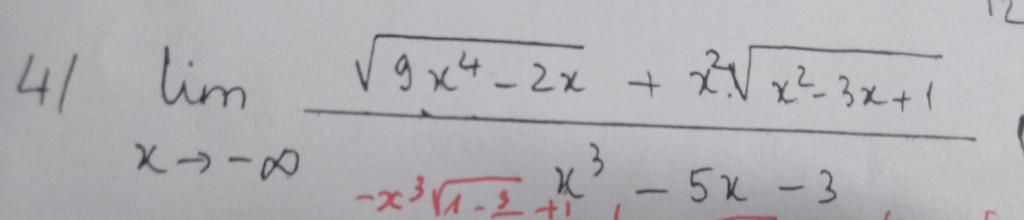 4/ lim x→-∞ (√(9x⁴ - 2x) + x².√(x² - 3x + 1)) / (x³ - 5x - 3)
-x³√1-3 +1